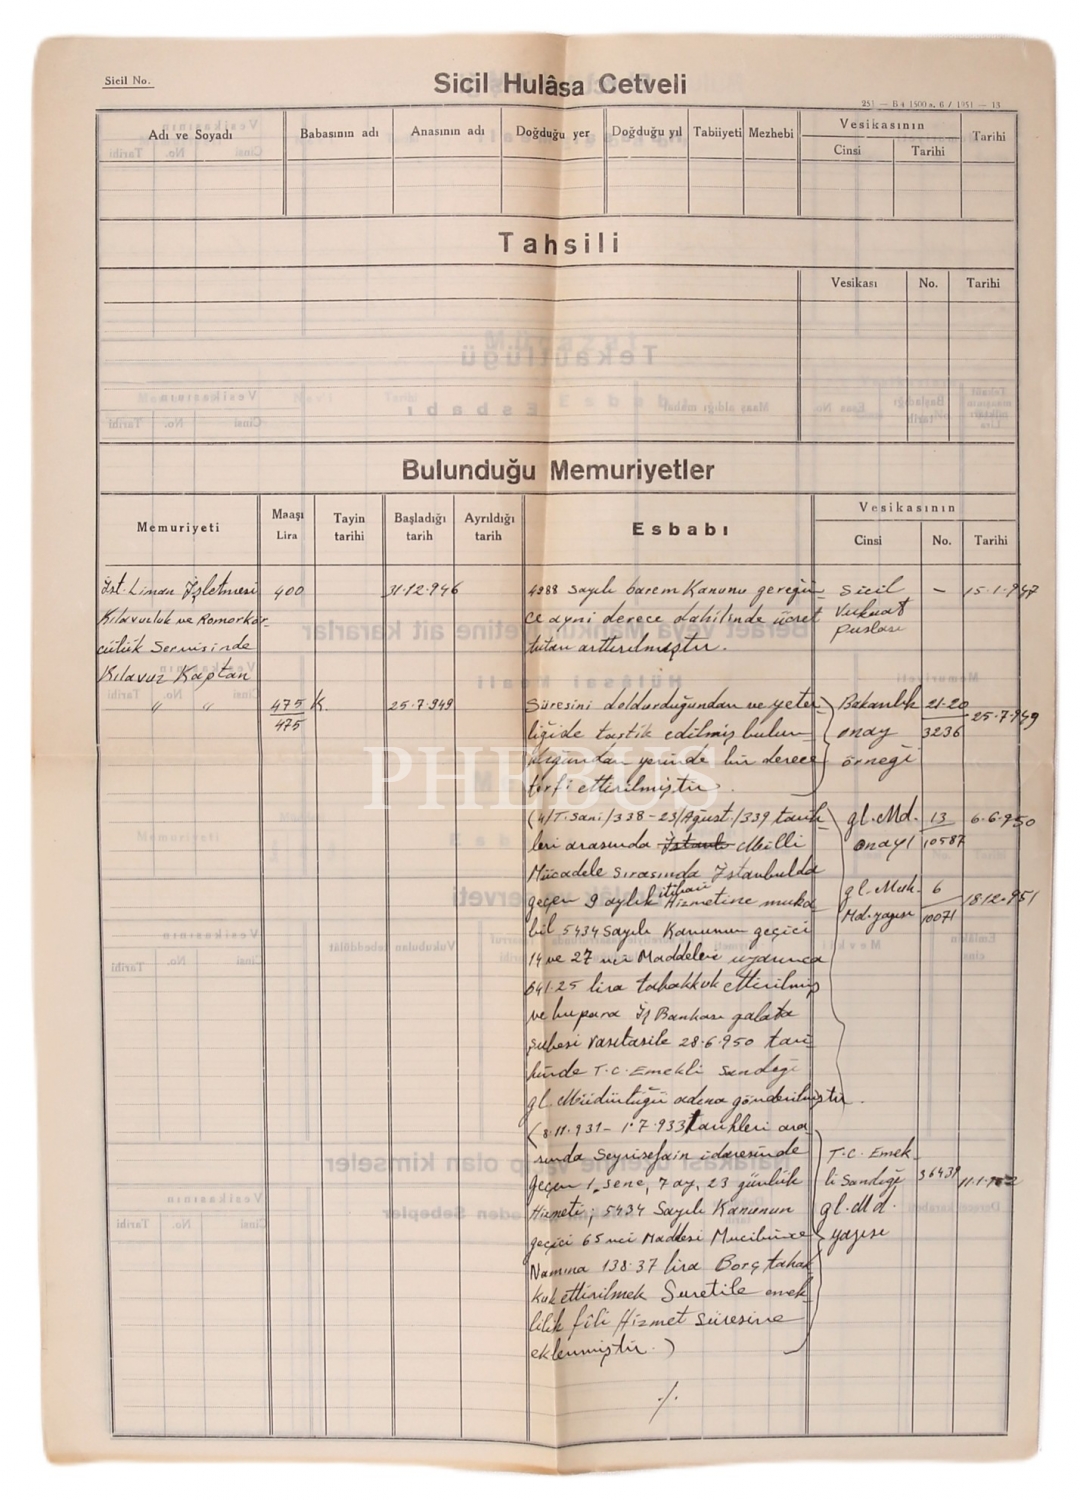 Sicil No.
Sicil Hulâsa Cetveli
251 — B4 1500 a. 6 / 1951 — 13
Adı ve Soyadı Babasının adı Anasının adı Doğduğu yer Doğduğu yıl Tabiiyeti Mezhebi Vesikasının Tarihi
Cinsi Tarihi
Tahsili
Vesikası No. Tarihi
Bulunduğu Memuriyetler
Memuriyeti Maaşı Lira Tayin tarihi Başladığı tarih Ayrıldığı tarih Esbabı Vesikasının
Cinsi No. Tarihi
İst. Liman İşletmesi 400 31.12.946 4988 sayılı barem Kanunu gereğin- Sicil — 15.1.947
Kılavuzluk ve Romorkör- ce ayni derece dahilinde ücret Vukuat
cülük Servisinde tutarı arttırılmıştır. puslası
Kılavuz Kaptan
" " 475 K. 25.7.949 Süresini doldurduğundan ve yeter- Bakanlık 21-20 25.7.949
475 liğide tastik edilmiş bulun- onay 3236
duğundan yerinde bir derece örneği
terfi ettirilmiştir.
(4/T.sani/338-23/Ağust./339 tarih- gl.Md. 13 6.6.950
leri arasında Milli onayı 10587
Mücadele sırasında İstanbulda
geçen 9 aylık itibari Hizmetine muka- gl. Muh. 6 18.12.951
bil 5434 Sayılı Kanunun geçici Md. yazısı 10071
14 ve 27 nci Maddeleri uyarınca
641.25 lira tahakkuk ettirilmiş
ve bu para İş Bankası galata
şubesi vasıtasile 28.6.950 tari-
hinde T.C. Emekli Sandığı
gl. Müdürlüğü adına gönderilmiştir.
(8.11.931 - 1.7.933 tarihleri ara-
sında Seyrisefain idaresinde T.C. Emek- 36439
geçen 1 sene, 7 ay, 23 günlük li Sandığı
Hizmeti; 5434 Sayılı Kanunun gl. Md.
geçici 65 nci Maddesi Mucibince yazısı
Namına 138.37 lira Borç tahak-
kuk ettirilmek Suretile emek-
lilik fiili Hizmet süresine
eklenmiştir.)
./.
PHEBUS